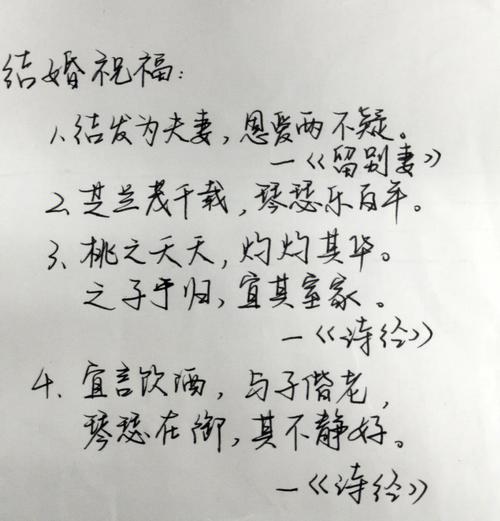 结婚祝福：
1、结发为夫妻，恩爱两不疑。
—《留别妻》
2、芝兰茂千载，琴瑟乐百年。
3、桃之夭夭，灼灼其华。
之子于归，宜其室家。
—《诗经》
4、宜言饮酒，与子偕老，
琴瑟在御，莫不静好。
—《诗经》